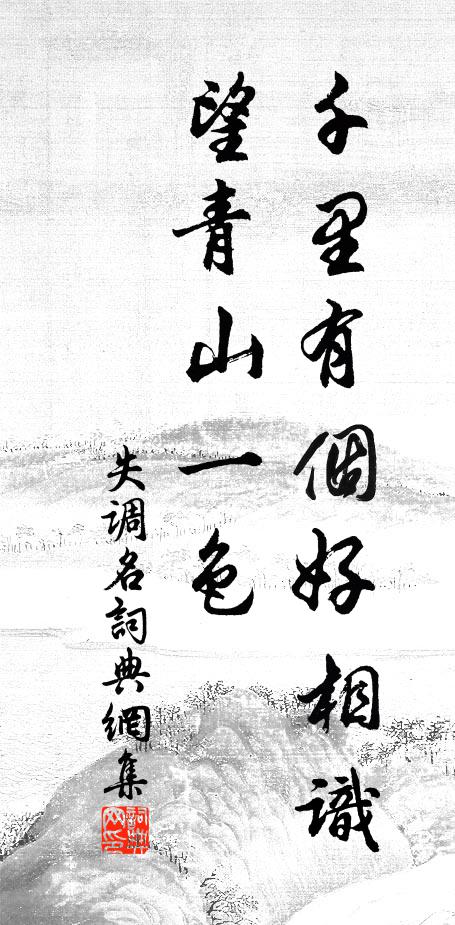 千里有個好相識
望青山一色
失调名詞典網集
詞典网